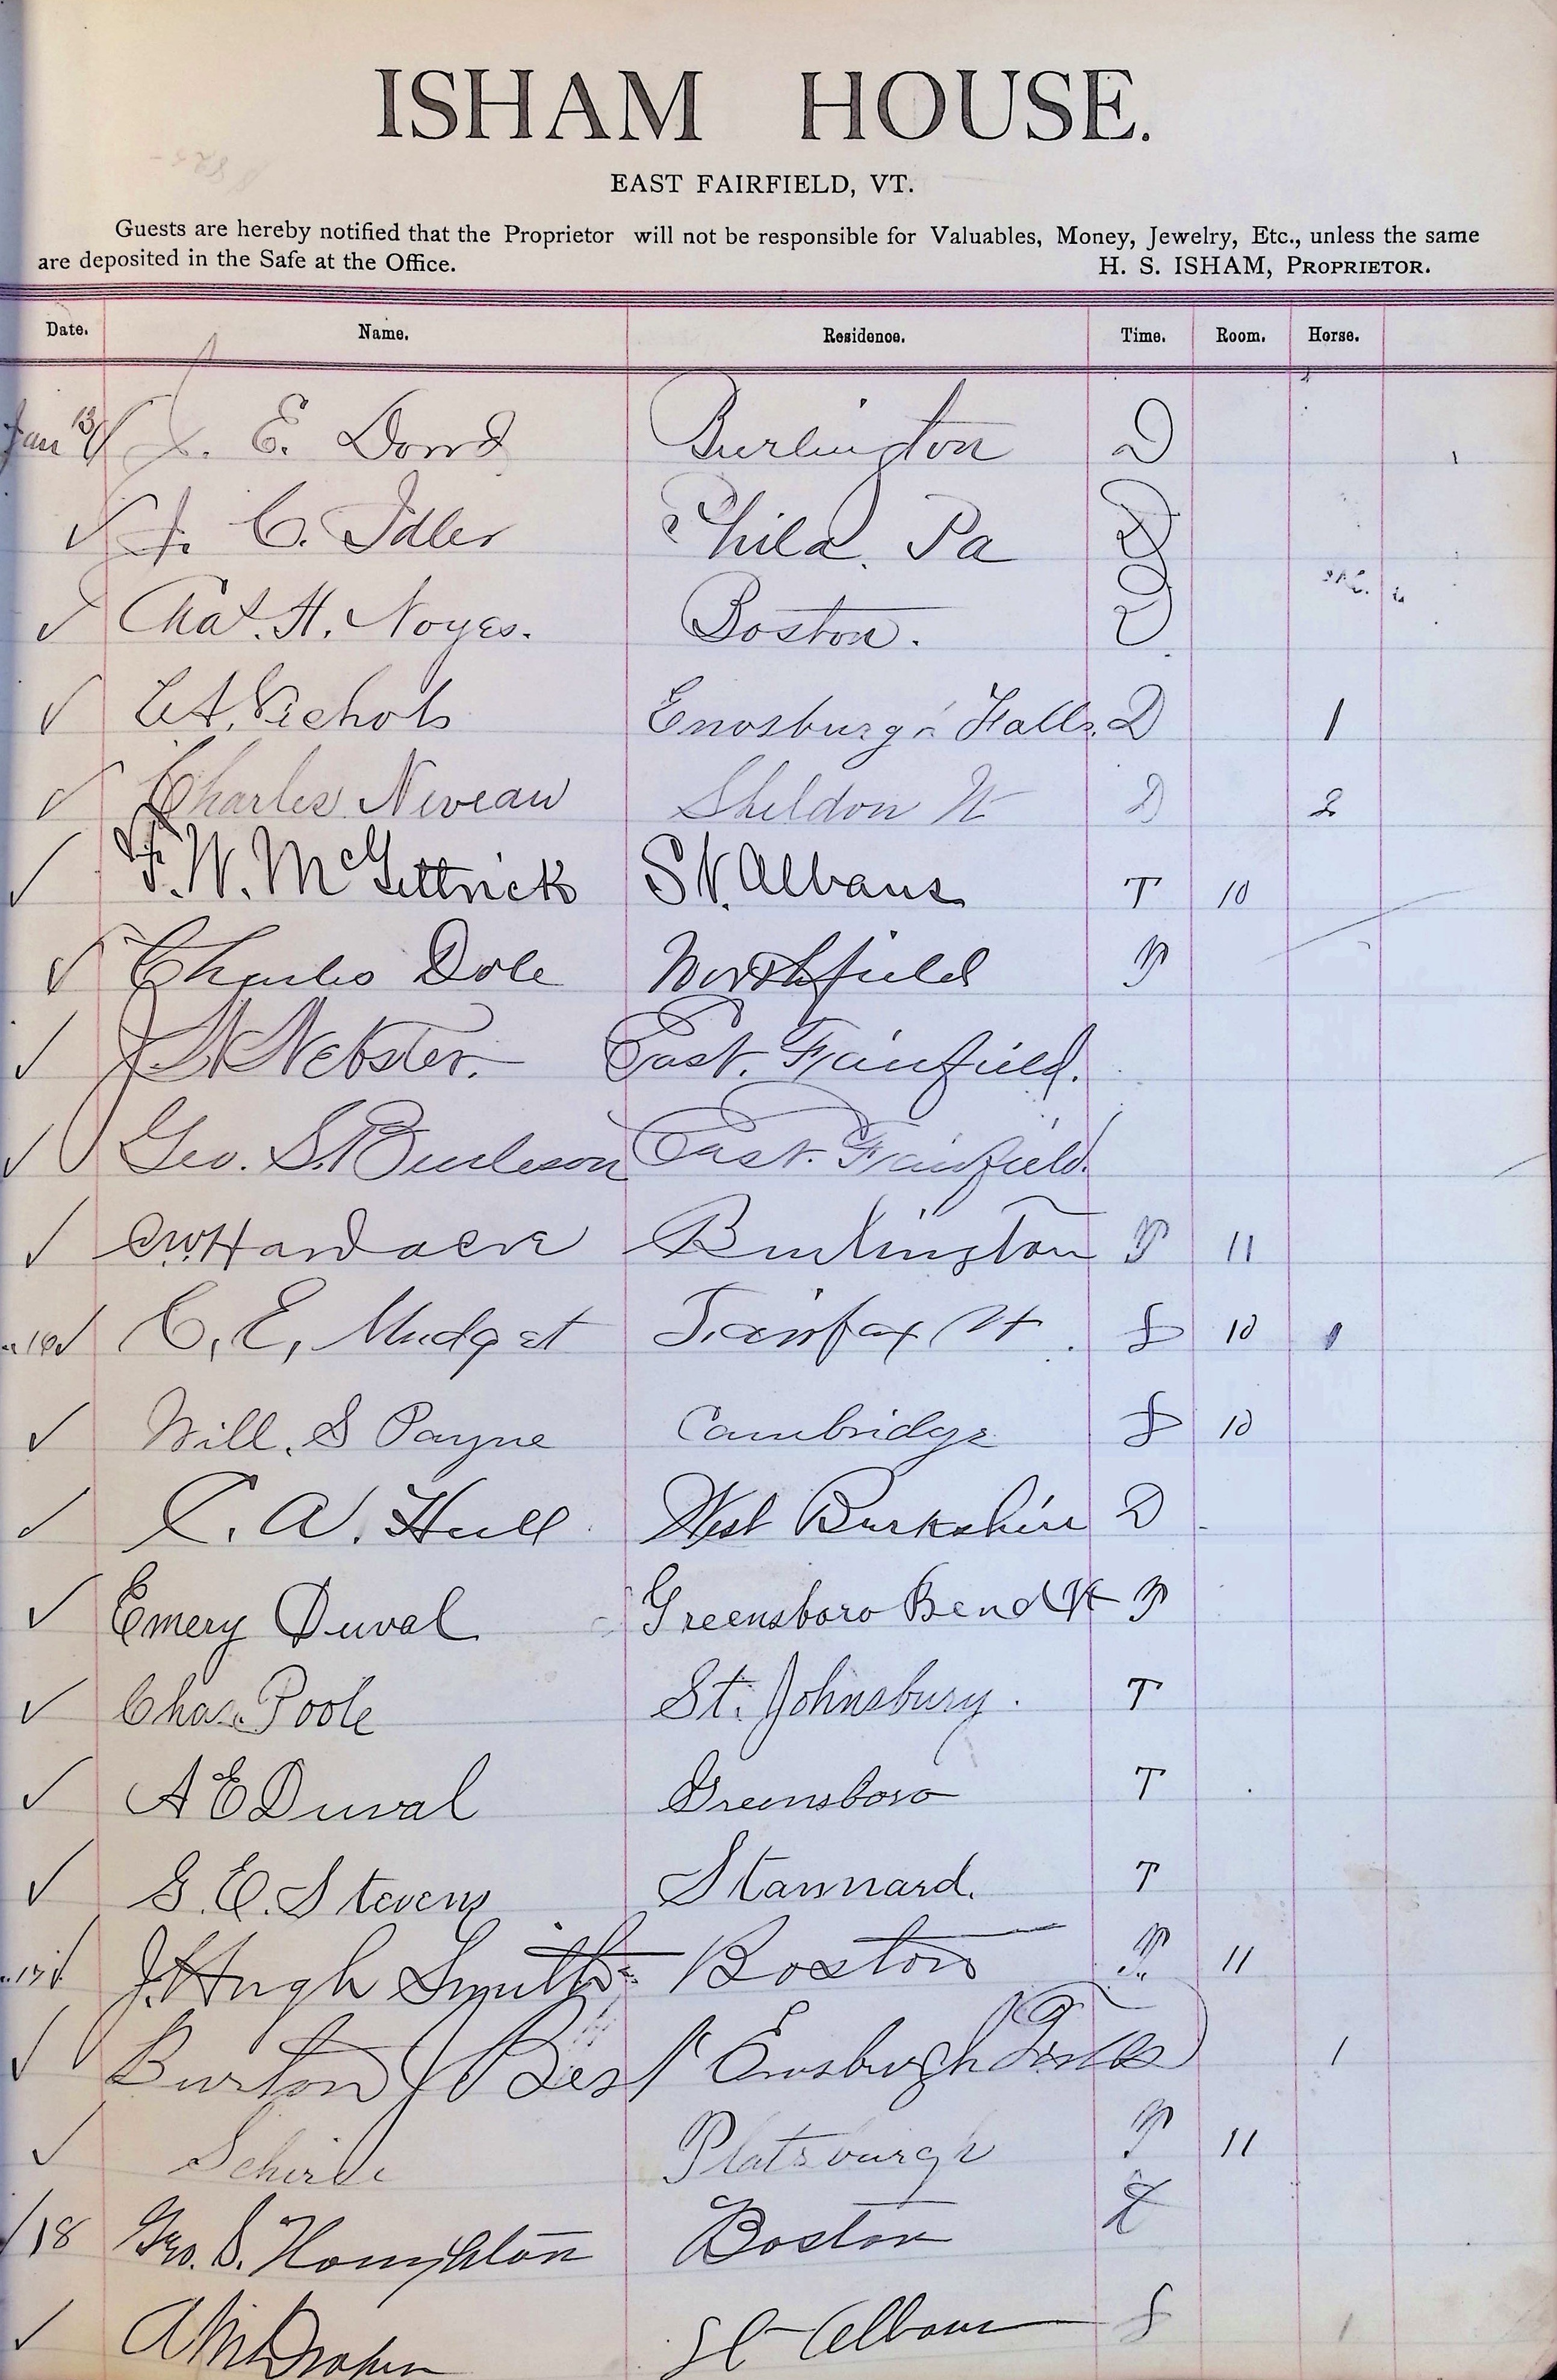 ISHAM HOUSE.
EAST FAIRFIELD, VT.
Guests are hereby notified that the Proprietor will not be responsible for Valuables, Money, Jewelry, Etc., unless the same
are deposited in the Safe at the Office. H. S. ISHAM, PROPRIETOR.
Date. Name. Residence. Time. Room. Horse.
Jan 13 E. Dowd Burlington D
✓ J. C. Idler Phila. Pa D
✓ Chas. H. Noyes. Boston. D
✓ Nichols Enosburgh Falls. D 1
✓ Charles Niveau Sheldon Vt D 2
✓ F. W. McGettrick St. Albans T 10
✓ Charles Dole Northfield
✓ Webster. East. Fairfield.
✓ Geo. S. Burleson East. Fairfield.
✓ Hardacre Burlington 11
✓ C, E, Mudget Fairfax Vt 10 1
✓ Will. S Payne Cambridge 10
✓ C. A. Hull West Burkshire D
✓ Emery Duval Greensboro Bend Vt
✓ Chas. Poole St. Johnsbury. T
✓ A E Duval Greensboro T
✓ G. E. Stevens Stannard. T
J. Hugh Smith Boston 11
✓ Burton Best Enosburgh Falls 1
✓ Platsburgh 11
18 Geo. S. Houghton Boston
✓ St Albans